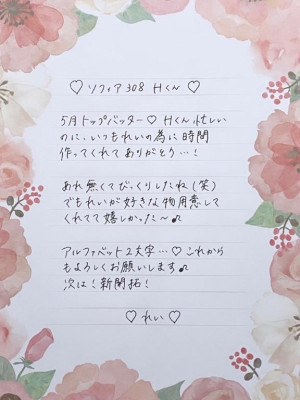 ♡ ソフィア308 Hくん ♡
5月トップバッター♡ Hくん忙しい
のに、いつもれいの為に時間
作ってくれてありがとう…!
あれ無くてびっくりしたね(笑)
でもれいが好きな物用意して
くれてて嬉しかった〜♫
アルファベット2文字…♡ これから
もよろしくお願いします♫
次は!新開拓!
♡ れい ♡